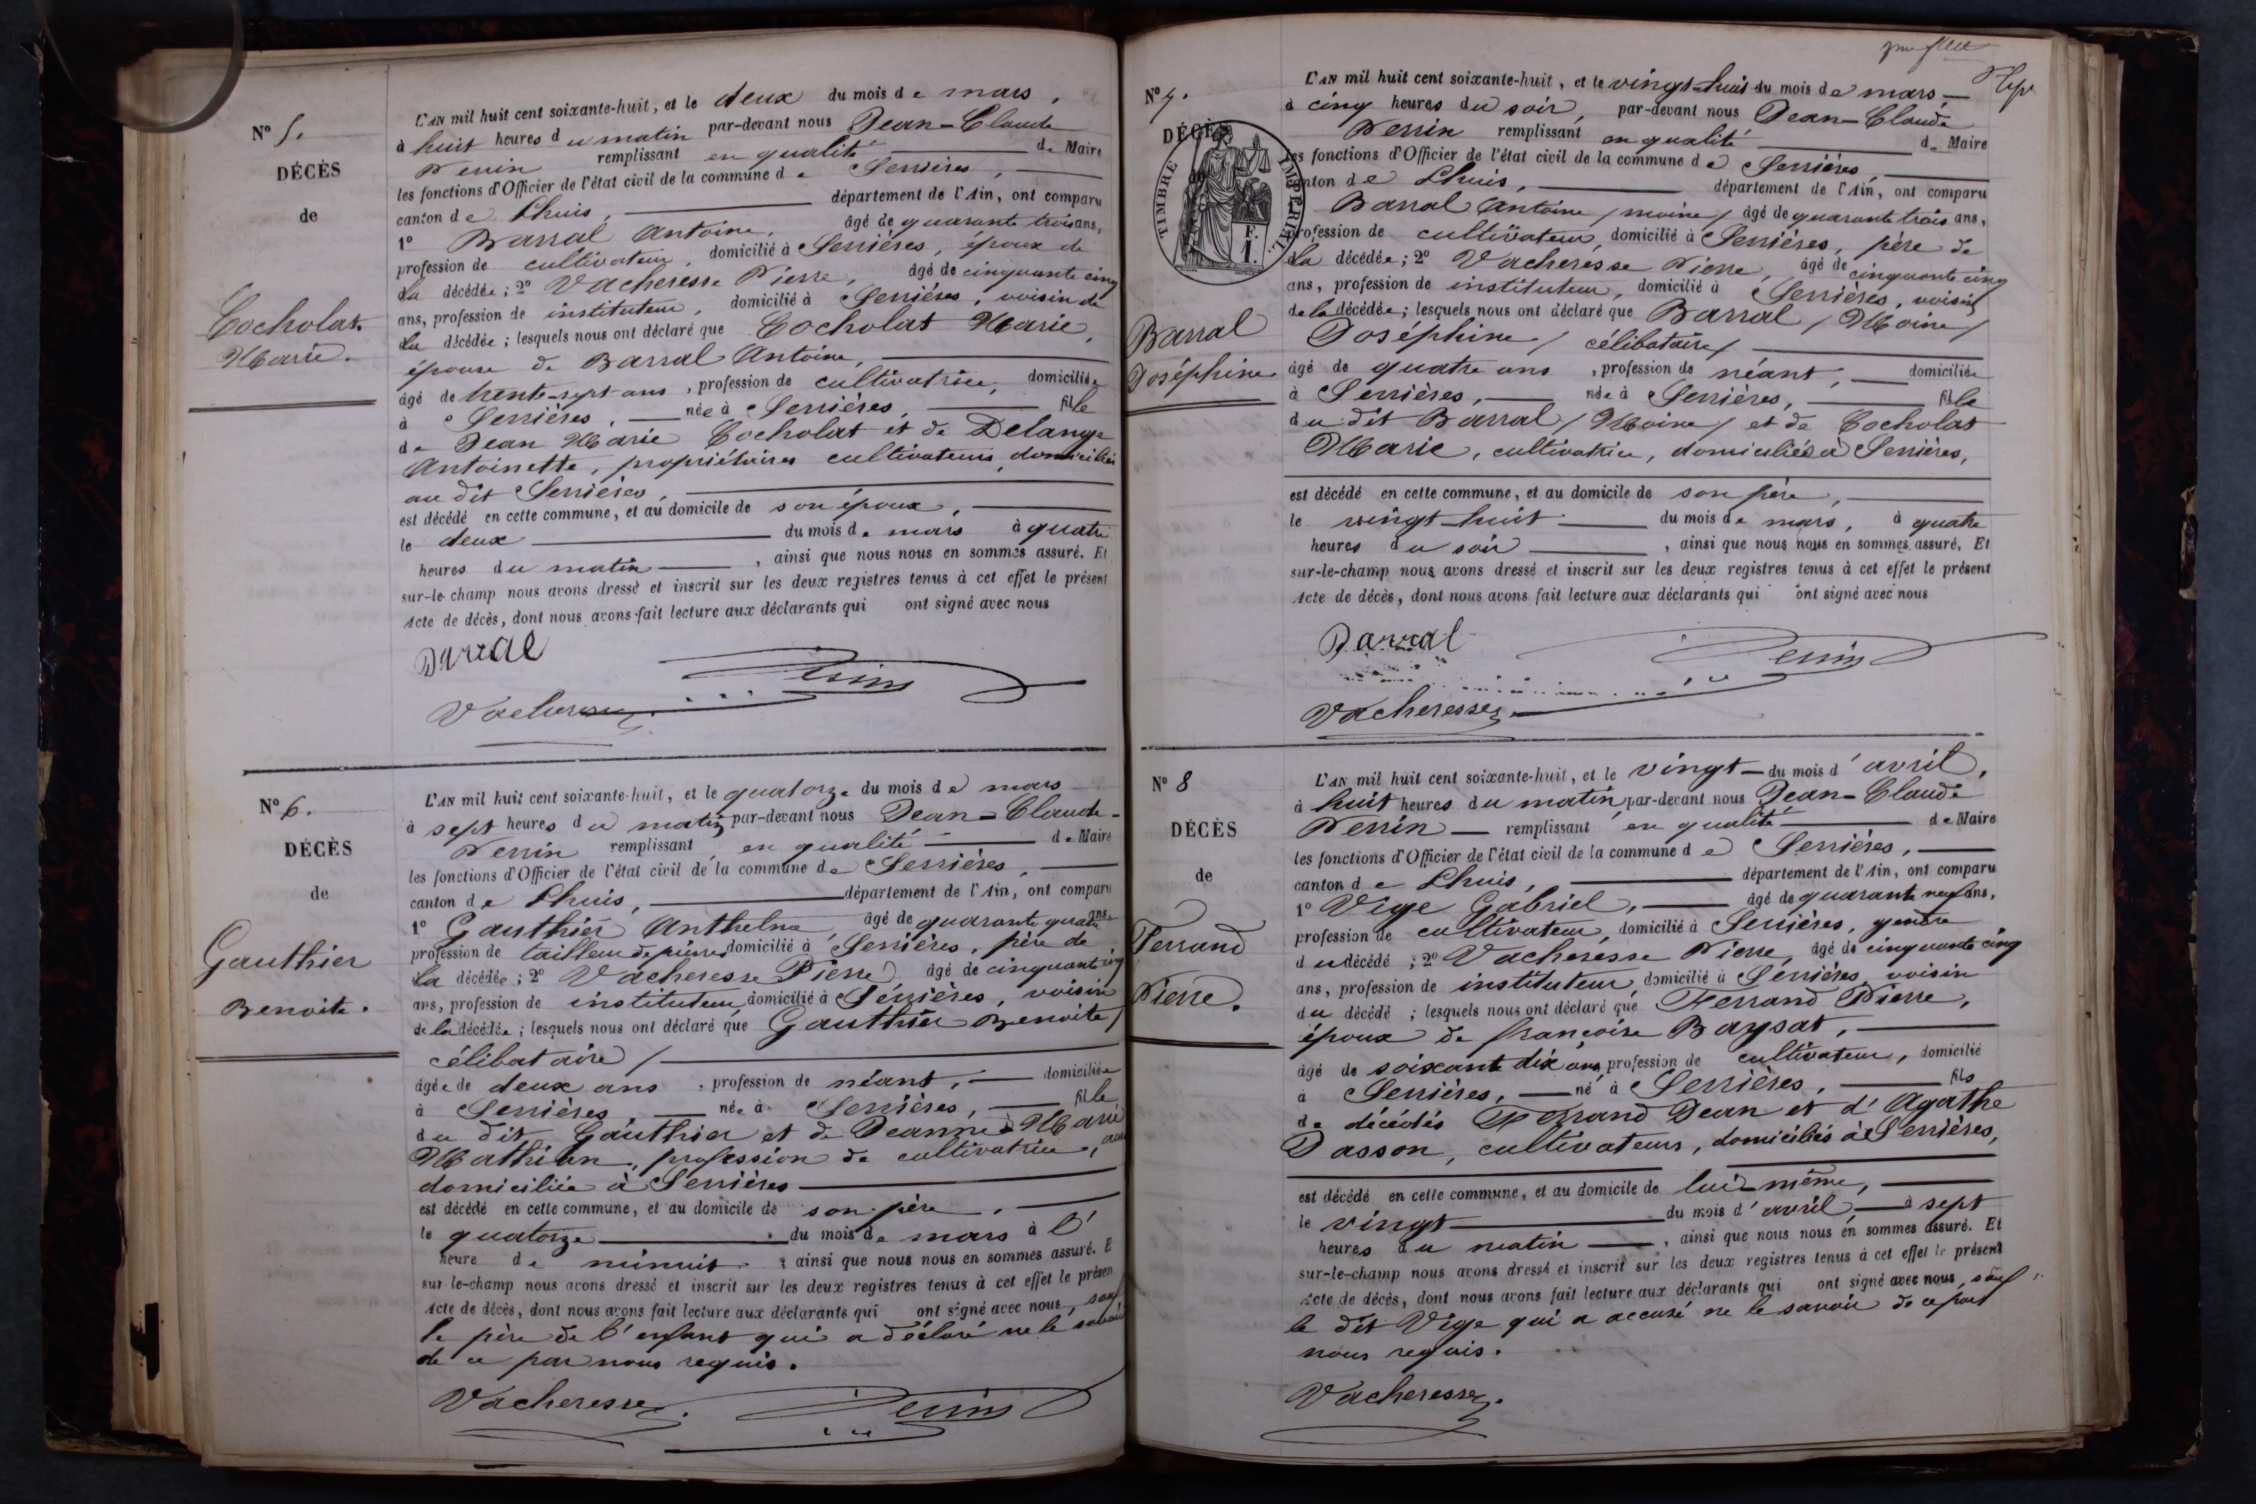 N° 5.
DÉCÈS
de
Cocholat
Marie.
L'AN mil huit cent soixante-huit, et le deux du mois de mars,
à huit heures du matin par-devant nous Jean-Claude
Perrin remplissant en qualité de Maire
les fonctions d'Officier de l'état civil de la commune de Serrières,
canton de Lhuis, département de l'Ain, ont comparu
1° Barral Antoine, âgé de quarante trois ans,
profession de cultivateur, domicilié à Serrières, époux de
la décédée; 2° Vacheresse Pierre, âgé de cinquante cinq
ans, profession de instituteur, domicilié à Serrières, voisin de
la décédée; lesquels nous ont déclaré que Cocholat Marie,
épouse de Barral Antoine,
âgé de trente-sept ans, profession de cultivatrice, domiciliée
à Serrières, née à Serrières, fille
de Jean Marie Cocholat et de Delange
Antoinette, propriétaires cultivateurs, domiciliés
au dit Serrières,
est décédé en cette commune, et au domicile de son époux,
le deux du mois de mars à quatre
heures du matin, ainsi que nous nous en sommes assuré. Et
sur-le-champ nous avons dressé et inscrit sur les deux registres tenus à cet effet le présent
Acte de décès, dont nous avons fait lecture aux déclarants qui ont signé avec nous
Barral
Perrin
Vacheresse
N° 6.
DÉCÈS
de
Gauthier
Benoite.
L'AN mil huit cent soixante-huit, et le quatorze du mois de mars
à sept heures du matin par-devant nous Jean-Claude
Perrin remplissant en qualité de Maire
les fonctions d'Officier de l'état civil de la commune de Serrières,
canton de Lhuis, département de l'Ain, ont comparu
1° Gauthier Anthelme, âgé de quarante quatre ans
profession de tailleur de pierres domicilié à Serrières, père de
la décédée; 2° Vacheresse Pierre âgé de cinquante cinq
ans, profession de instituteur, domicilié à Serrières, voisin
de la décédée; lesquels nous ont déclaré que Gauthier Benoite /
célibataire /
âgée de deux ans, profession de néant, domiciliée
à Serrières, née à Serrières, fille
du dit Gauthier et de Jeanne Marie
profession de cultivatrice,
domiciliée à Serrières
est décédé en cette commune, et au domicile de son père,
le quatorze du mois de mars à l'
heure de minuit, ainsi que nous nous en sommes assuré. E
sur le-champ nous avons dressé et inscrit sur les deux registres tenus à cet effet le présen
Acte de décès, dont nous avons fait lecture aux déclarants qui ont signé avec nous, sauf
le père de l'enfant qui a déclaré ne le savoir
de ce par nous requis.
Vacheresse.
Perrin
N° 7.
DÉCÈS
TIMBRE IMPÉRIAL
F.
1.
Barral
Joséphine
L'AN mil huit cent soixante-huit, et le vingt-huit du mois de mars
à cinq heures du soir, par-devant nous Jean-Claude
Perrin remplissant en qualité de Maire
les fonctions d'Officier de l'état civil de la commune de Serrières,
canton de Lhuis, département de l'Ain, ont comparu
Barral Antoine / moine / âgé de quarante trois ans,
profession de cultivateur, domicilié à Serrières, père de
la décédée; 2° Vacheresse Pierre, âgé de cinquante cinq
ans, profession de instituteur, domicilié à Serrières, voisin
de la décédée; lesquels nous ont déclaré que Barral / Moine /
Joséphine / célibataire /
âgé de quatre ans, profession de néant, domiciliée
à Serrières, née à Serrières, fille
du dit Barral / Moine / et de Cocholat
Marie, cultivatrice, domiciliés à Serrières,
est décédé en cette commune, et au domicile de son père,
le vingt-huit du mois de mars, à quatre
heures du soir, ainsi que nous nous en sommes assuré. Et
sur-le-champ nous avons dressé et inscrit sur les deux registres tenus à cet effet le présent
Acte de décès, dont nous avons fait lecture aux déclarants qui ont signé avec nous
Barral
Perrin
Vacheresse
N° 8
DÉCÈS
de
Ferrand
Pierre.
L'AN mil huit cent soixante-huit, et le vingt du mois d'avril,
à huit heures du matin par-devant nous Jean-Claude
Perrin remplissant en qualité de Maire
les fonctions d'Officier de l'état civil de la commune de Serrières,
canton de Lhuis, département de l'Ain, ont comparu
1° Vige Gabriel, âgé de quarante neuf ans,
profession de cultivateur, domicilié à Serrières, gendre
du décédé; 2° Vacheresse Pierre, âgé de cinquante cinq
ans, profession de instituteur, domicilié à Serrières, voisin
du décédé; lesquels nous ont déclaré que Ferrand Pierre,
époux de françoise Baysat,
âgé de soixante dix ans, profession de cultivateur, domicilié
à Serrières, né à Serrières, fils
de décédés Ferrand Jean et d'Agathe
Dasson, cultivateurs, domiciliés à Serrières,
est décédé en cette commune, et au domicile de lui-même,
le vingt du mois d'avril à sept
heures du matin, ainsi que nous nous en sommes assuré. Et
sur-le-champ nous avons dressé et inscrit sur les deux registres tenus à cet effet le présent
Acte de décès, dont nous avons fait lecture aux déclarants qui ont signé avec nous, sauf
le dit Vige qui a accusé ne le savoir de ce par
nous requis.
Vacheresse.